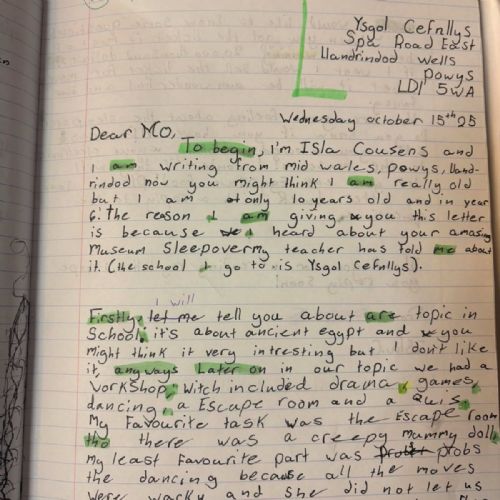 Ysgol Cefnllys
Spa Road East
Llandrindod Wells
Powys
LD1 5WA
Wednesday october 15th 25
Dear Mo,
To begin, I'm Isla Cousens and
I am writing from mid wales, powys, lland-
rindod now you might think I am really old
but I am only 10 years old and in year
6. The reason I am giving you this letter
is because I heard about your amazing
museum Sleepover my teacher has told me about
it. (the school I go to is Ysgol Cefnllys).
I will
Firstly, let me tell you about are topic in
School, it's about ancient egypt and you
might think it very intresting but I don't like
it, anyways Later on in our topic we had a
workshop, witch included drama, games,
dancing, a Escape room and a Quis.
My favourite task was the Escape room
tho there was a creepy mummy doll,
my least favourite part was probs
the dancing because all the moves
were wacky and she did not let us